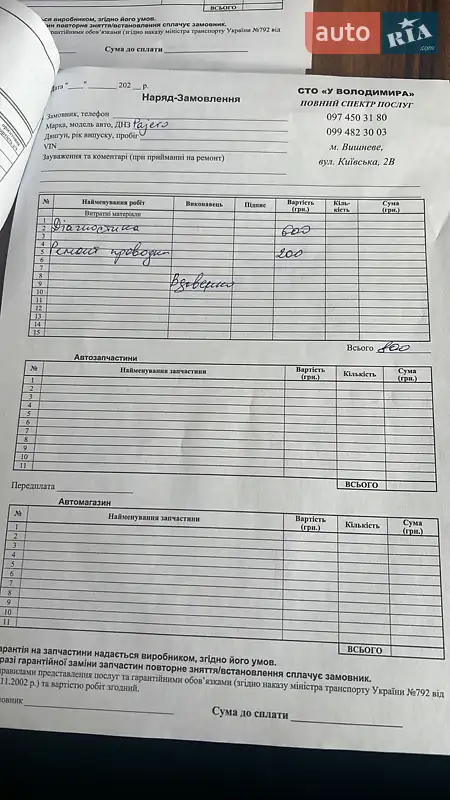 ВСЬОГО
ься виробником, згідно його умов.
ин повторне зняття/встановлення сплачує замовник.
гарантійними обов'язками (згідно наказу міністра транспорту України №792 від
Сума до сплати
auto RIA .com
Дата "___" ________ 202__ р.
СТО «У ВОЛОДИМИРА»
ПОВНИЙ СПЕКТР ПОСЛУГ
097 450 31 80
099 482 30 03
м. Вишневе,
вул. Київська, 2В
Наряд-Замовлення
Замовник, телефон
Марка, модель авто, ДНЗ Pajero
Двигун, рік випуску, пробіг
VIN
Зауваження та коментарі (при прийманні на ремонт)
№ Найменування робіт Виконавець Підпис Вартість (грн.) Кіль-кість Сума (грн.)
Витратні матеріали
1
2 Діагностика 600
3
4
5 Ремонт проводки 200
6
7
8
9
10
11
12
13
14
15
Всього 800
Автозапчастини
№ Найменування запчастини Вартість (грн.) Кількість Сума (грн.)
1
2
3
4
5
6
7
8
9
10
11
ВСЬОГО
Передплата
Автомагазин
№ Найменування запчастини Вартість (грн.) Кількість Сума (грн.)
1
2
3
4
5
6
7
8
9
10
11
ВСЬОГО
арантія на запчастини надається виробником, згідно його умов.
разі гарантійної заміни запчастин повторне зняття/встановлення сплачує замовник.
равилами представлення послуг та гарантійними обов'язками (згідно наказу міністра транспорту України №792 від
.11.2002 р.) та вартістю робіт згодний.
мовник
Сума до сплати